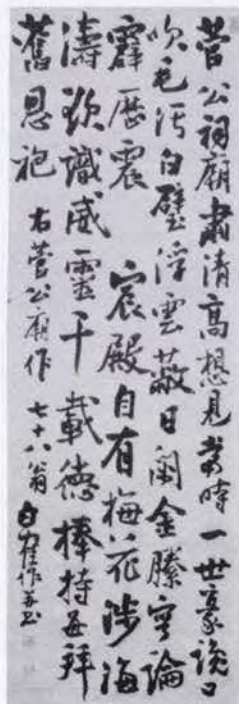 菅公祠廟肅清高想見當時一世豪讒口
吹毛汚白璧浮雲蔽日闕金縢寧論
霹歴震宸殿自有梅花渉海
濤欲識威靈千載德捧持每拜
舊恩袍　右菅公廟作　七十八翁白隺作并書